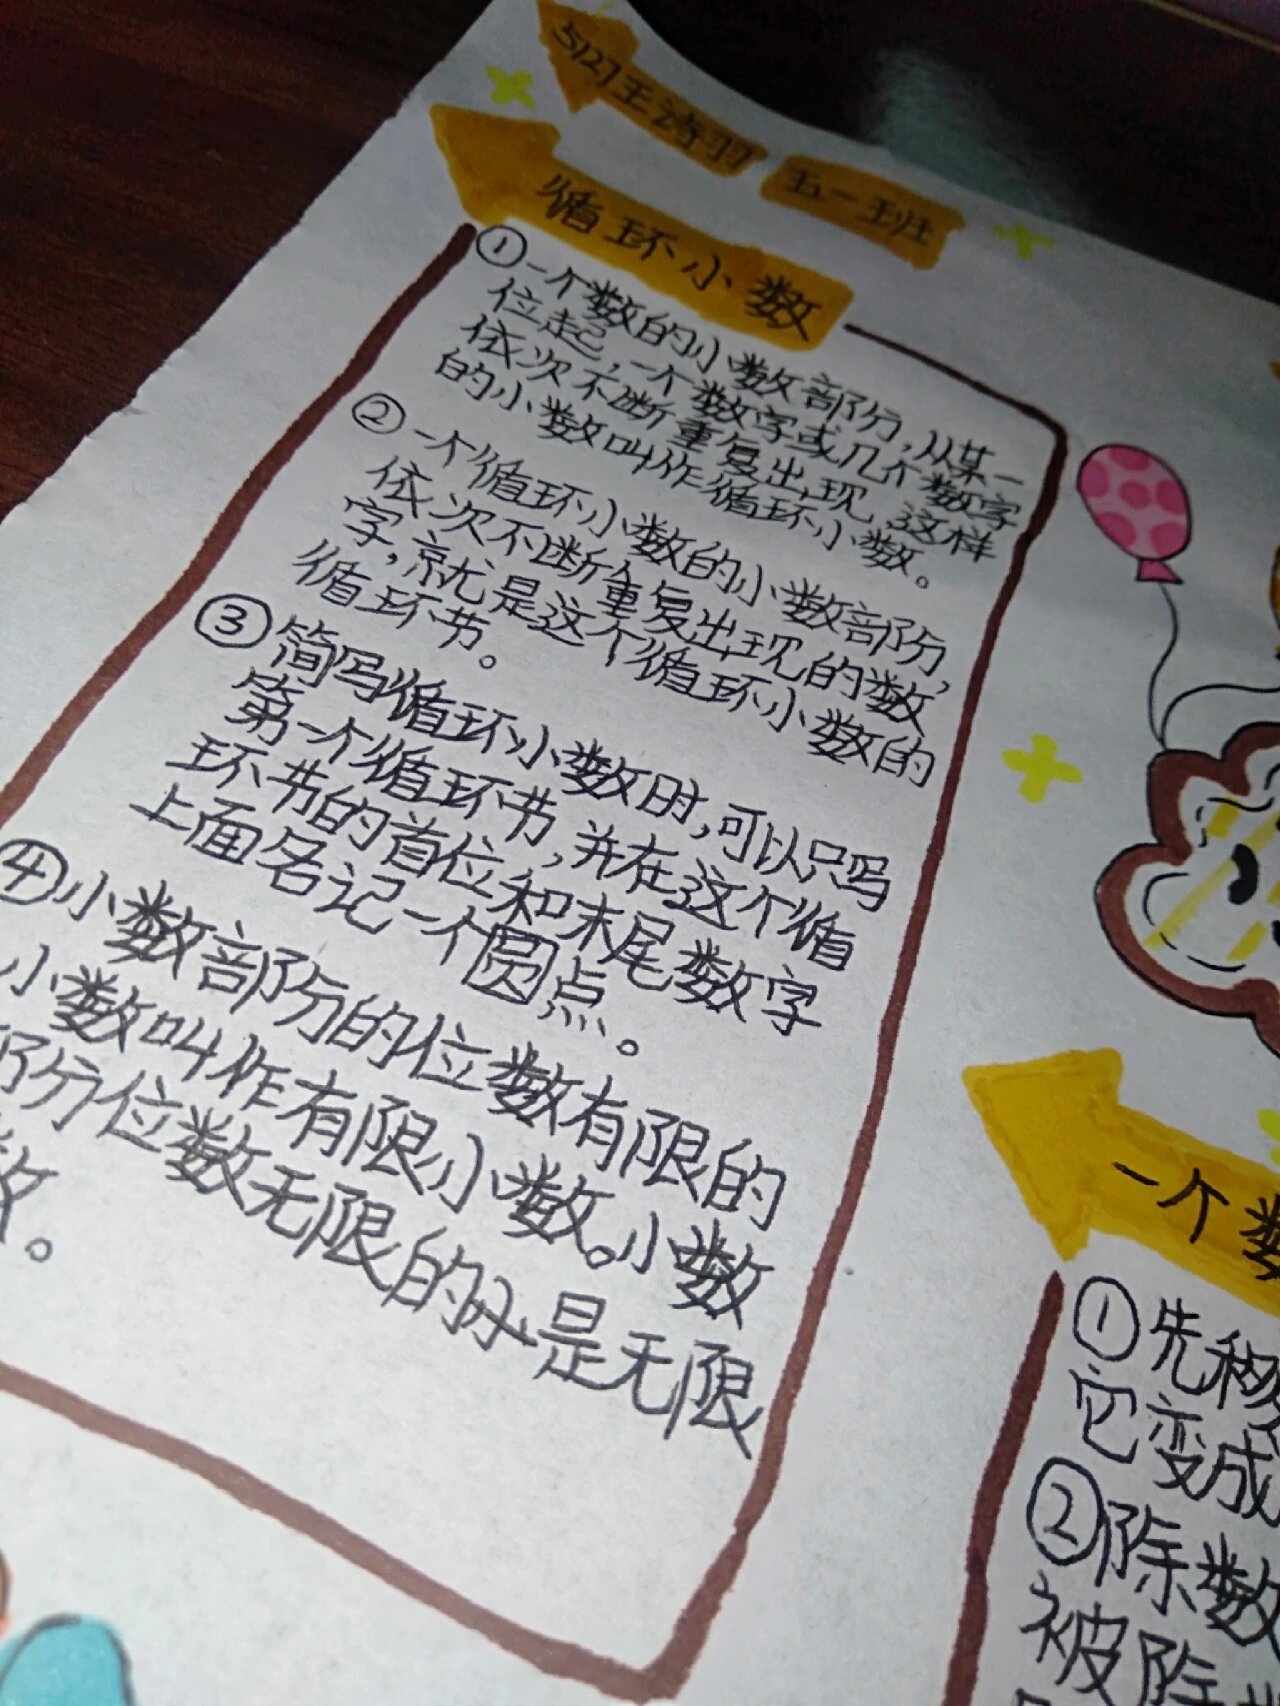 5127王诗羽 五一班
循环小数
①一个数的小数部分，从某一
位起，一个数字或几个数字
依次不断重复出现，这样
的小数叫作循环小数。
②一个循环小数的小数部分，
依次不断重复出现的数
字，就是这个循环小数的
循环节。
③简写循环小数时，可以只写
第一个循环节，并在这个循
环节的首位和末尾数字
上面名记一个圆点。
④小数部分的位数有限的
小数叫作有限小数。小数
部分位数无限的小是无限
数。
一个数
①先移
它变成
②除数
被除